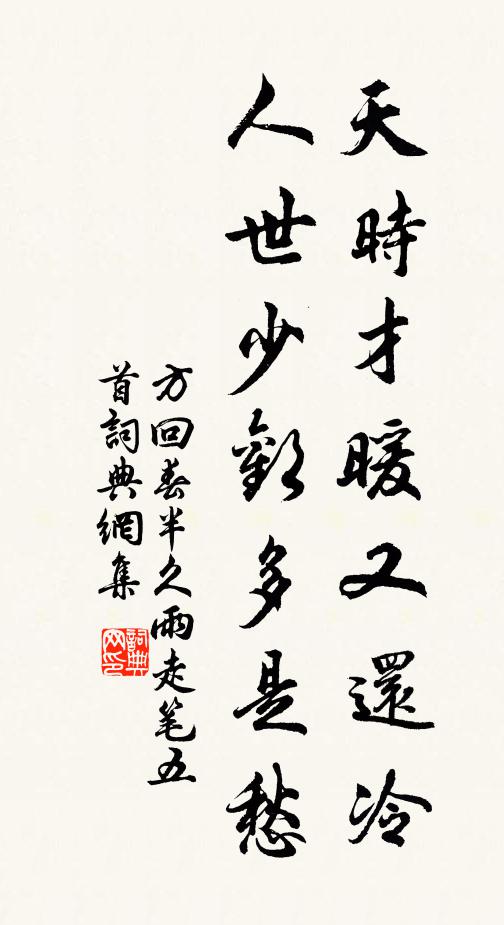 天時才暖又還冷
人世少歡多是愁
方回春半久雨走笔五
首詞典網集
詞典
网印